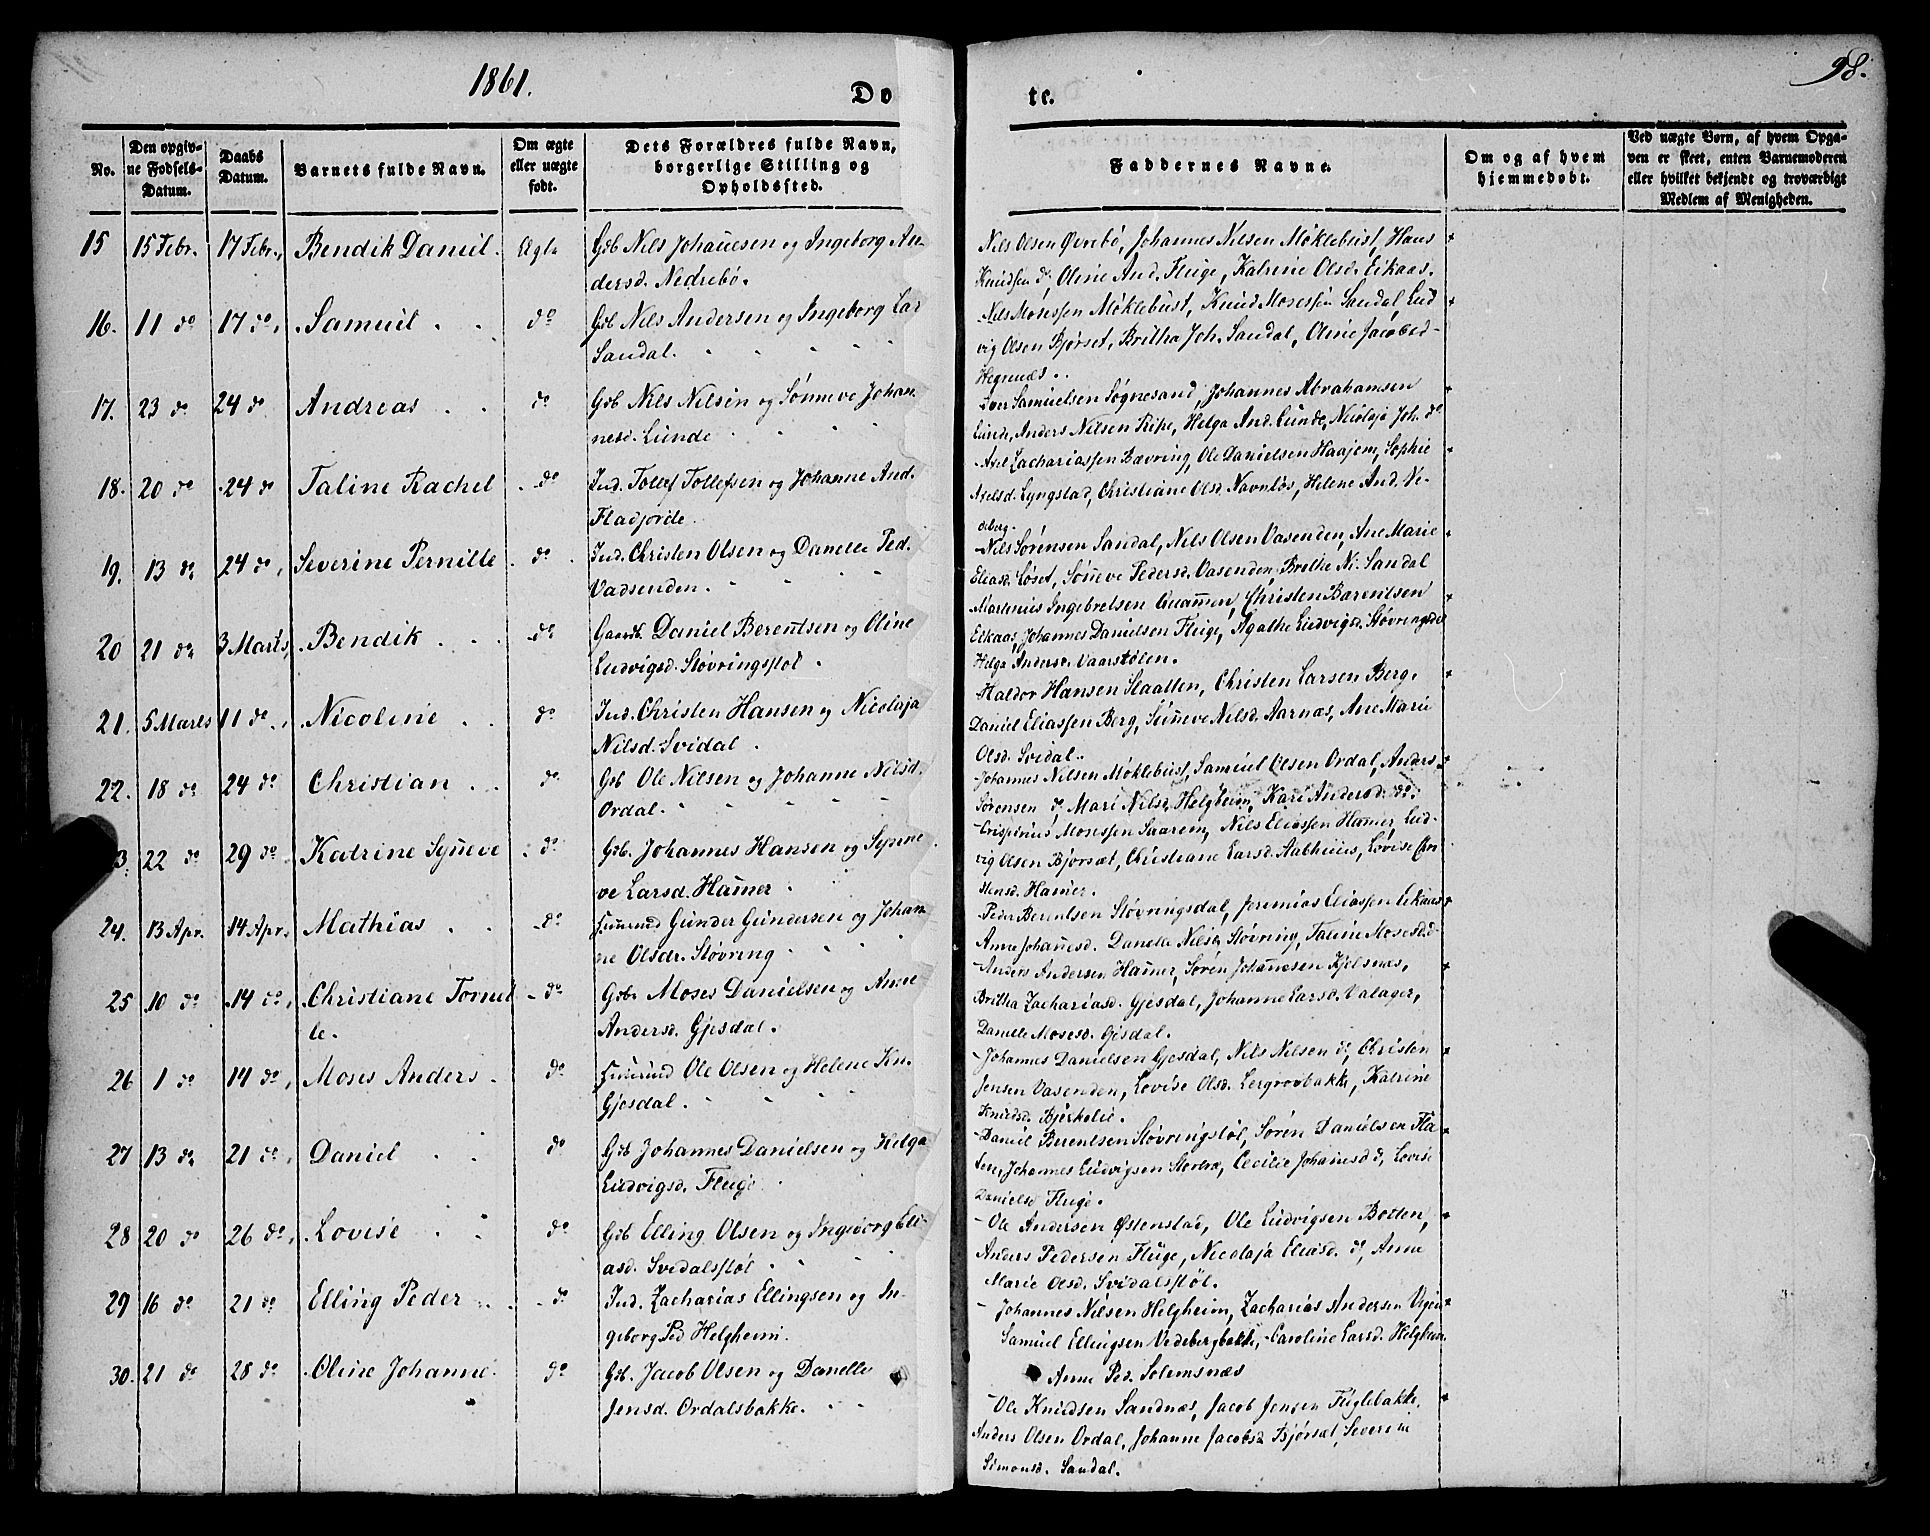 1861.
Dø
te.
98.
No.
Den opgiv-
ne Fødsels-
Datum.
Daabs
Datum.
Barnets fulde Navn.
Om ægte
eller uægte
født.
Dets Forældres fulde Navn,
borgerlige Stilling og
Opholdssted.
Faddernes Navne.
Om og af hvem
hjemmedøbt.
Ved uægte Børn, af hvem Opga-
ven er skeet, enten Barnemoderen
eller hvilket bekjendt og troværdigt
Medlem af Menigheden.
15 15 Febr. 17 Febr. Bendik Daniel. Ægte Gsb Nils Johannesen og Ingeborg An-
dersd. Nedrebø.
Nils Olsen Øvrebø, Johannes Nilsen Møklebust, Hans
Knudsen do, Oline And. Fluge, Katrine Olsd. Eikaas.
16. 11 do 17 do. Samuel do Gsb Nils Andersen og Ingeborg Lar
Sandal.
Nils Mosessen Møklebust, Knud Mosessen Sandal, Lud
vig Olsen Bjørset, Britha Joh. Sandal, Oline Jacobsd-
Hegrenæs.
17. 23 do 24 do Andreas do Gsb Nils Nilsen og Sønneve Johan
nesd. Lunde
Iver Samuelsen Søgnesand, Johannes Abrahamsen
Lunde, Anders Nilsen Ripe, Helga And. Lunde, Nicolaja Joh. do
18. 20 do 24 do Taline Rachel do Ind. Tollef Tollefsen og Johanne And.
Fladjorde
Axel Zachariassen Bævring, Ole Danielsen Haajem, Sophie
Axelsd. Lyngstad, Christiane Olsd. Navnløs, Helene And. Ve-
deberg.
19. 13 do 24 do, Severine Pernille do Ind. Christen Olsen og Danelle Ped.
Vadsenden.
Nils Sørensen Sandal, Nils Olsen Vasenden, Ane Marie
Eliasd. Løset, Sønneve Pedersd. Vasenden, Brithe Ni. Sandal
20 21 do 3 Marts, Bendik do Gaardb. Daniel Berentsen og Oline
Ludvigsd. Støvringsstøl.
Martinius Ingebretsen Quammen, Christen Barentsen
Eikaas, Johannes Danielsen Fluge, Agathe Ludvigsd. Støvringsdal
Helga Andersd. Vaarstølen.
21. 5 Marts 11 do Nicoline do Ind. Christen Hansen og Nicolaja
Nilsd. Svidal
Haldor Hansen Slaatten, Christen Larsen Berg,
Daniel Eliassen Berg, Sønneve Nilsd. Aarnæs, Ane Marie
Olsd. Svidal.
22. 18 do 24 do Christian do Gsb Ole Nilsen og Johanne Nilsd.
Ordal.
Johannes Nilsen Møklebust, Samuel Olsen Ordal, Anders
Sørensen do, Mari Nilsd. Helgheim, Kari Andersd. do.
3. 22 do 29 do Katrine Synneve do Gsb. Johannes Hansen og Synne
ve Larsd. Hammer.
Crispinus Mosessen Saarem, Nils Eliassen Hammer, Lud-
vig Olsen Bjørsæt, Christiane Larsd. Aabhuus, Lovise Chri
stensd. Hammer.
24. 13 Apr. 14 Apr. Mathias do Gunder Gundersen og Johan
ne Olsdr. Støvring
Peder Berentsen Støvringsdal, Jeremias Eliassen Eikaas
Anne Johannesd. Danelle Nilsd. Støvring, Taline Mosesd. do
25 10 do 14 do, Christiane Tornel do Gsbr Moses Danielsen og Anne
le.
Andersd. Gjesdal.
Anders Andersen Hammer, Søren Johannesen Kjelsnæs,
Britha Zachariasd. Gjesdal, Johanne Larsd. Valager,
Danelle Mosesd. Gjesdal.
26 1 do 14 do, Moses Anders. do Ole Olsen og Helene Kn.
Gjesdal.
Johannes Danielsen Gjesdal, Nils Nilsen do, Christen
Jensen Vasenden, Lovise Olsd. Lergrovbakke, Katrine
Knudsd. Bjerkelie.
27 13 do 21 do, Daniel do Gsb Johannes Danielsen og Helga
Ludvigsd. Fluge
Daniel Berentsen Støvringstøl, Søren Danielsen Fla
tene, Johannes Ludvigsen Storbræ, Cecilie Johannesd do, Lovise
Danielsd Fluge.
28 20 do 26 do, Lovise do Gsb Elling Olsen og Ingeborg Eli-
asd. Svidalsstøl
Ole Andersen Østenstad, Ole Ludvigsen Botten,
Anders Pedersen Fluge, Nicolaja Eliasd. do, Anne
Marie Olsd. Svidalsstøl.
29 16 do 21 do Elling Peder do Ind. Zacharias Ellingsen og In-
geborg Ped Helgheim.
Johannes Nilsen Helgheim, Zacharias Andersen
Samuel Ellingsen Vedebergbakke, Caroline Larsd. Helgheim
Anne Ped. Solemsnæs
30. 21 do 28 do Oline Johanne. do Gsb. Jacob Olsen og Danelle
Jensd. Ordalsbakke.
Ole Knudsen Sandnæs, Jacob Jensen Fuglebakke,
Anders Olsen Ordal, Johanne Jacobsd Bjørsæt, Severine
Simonsd. Sandal.